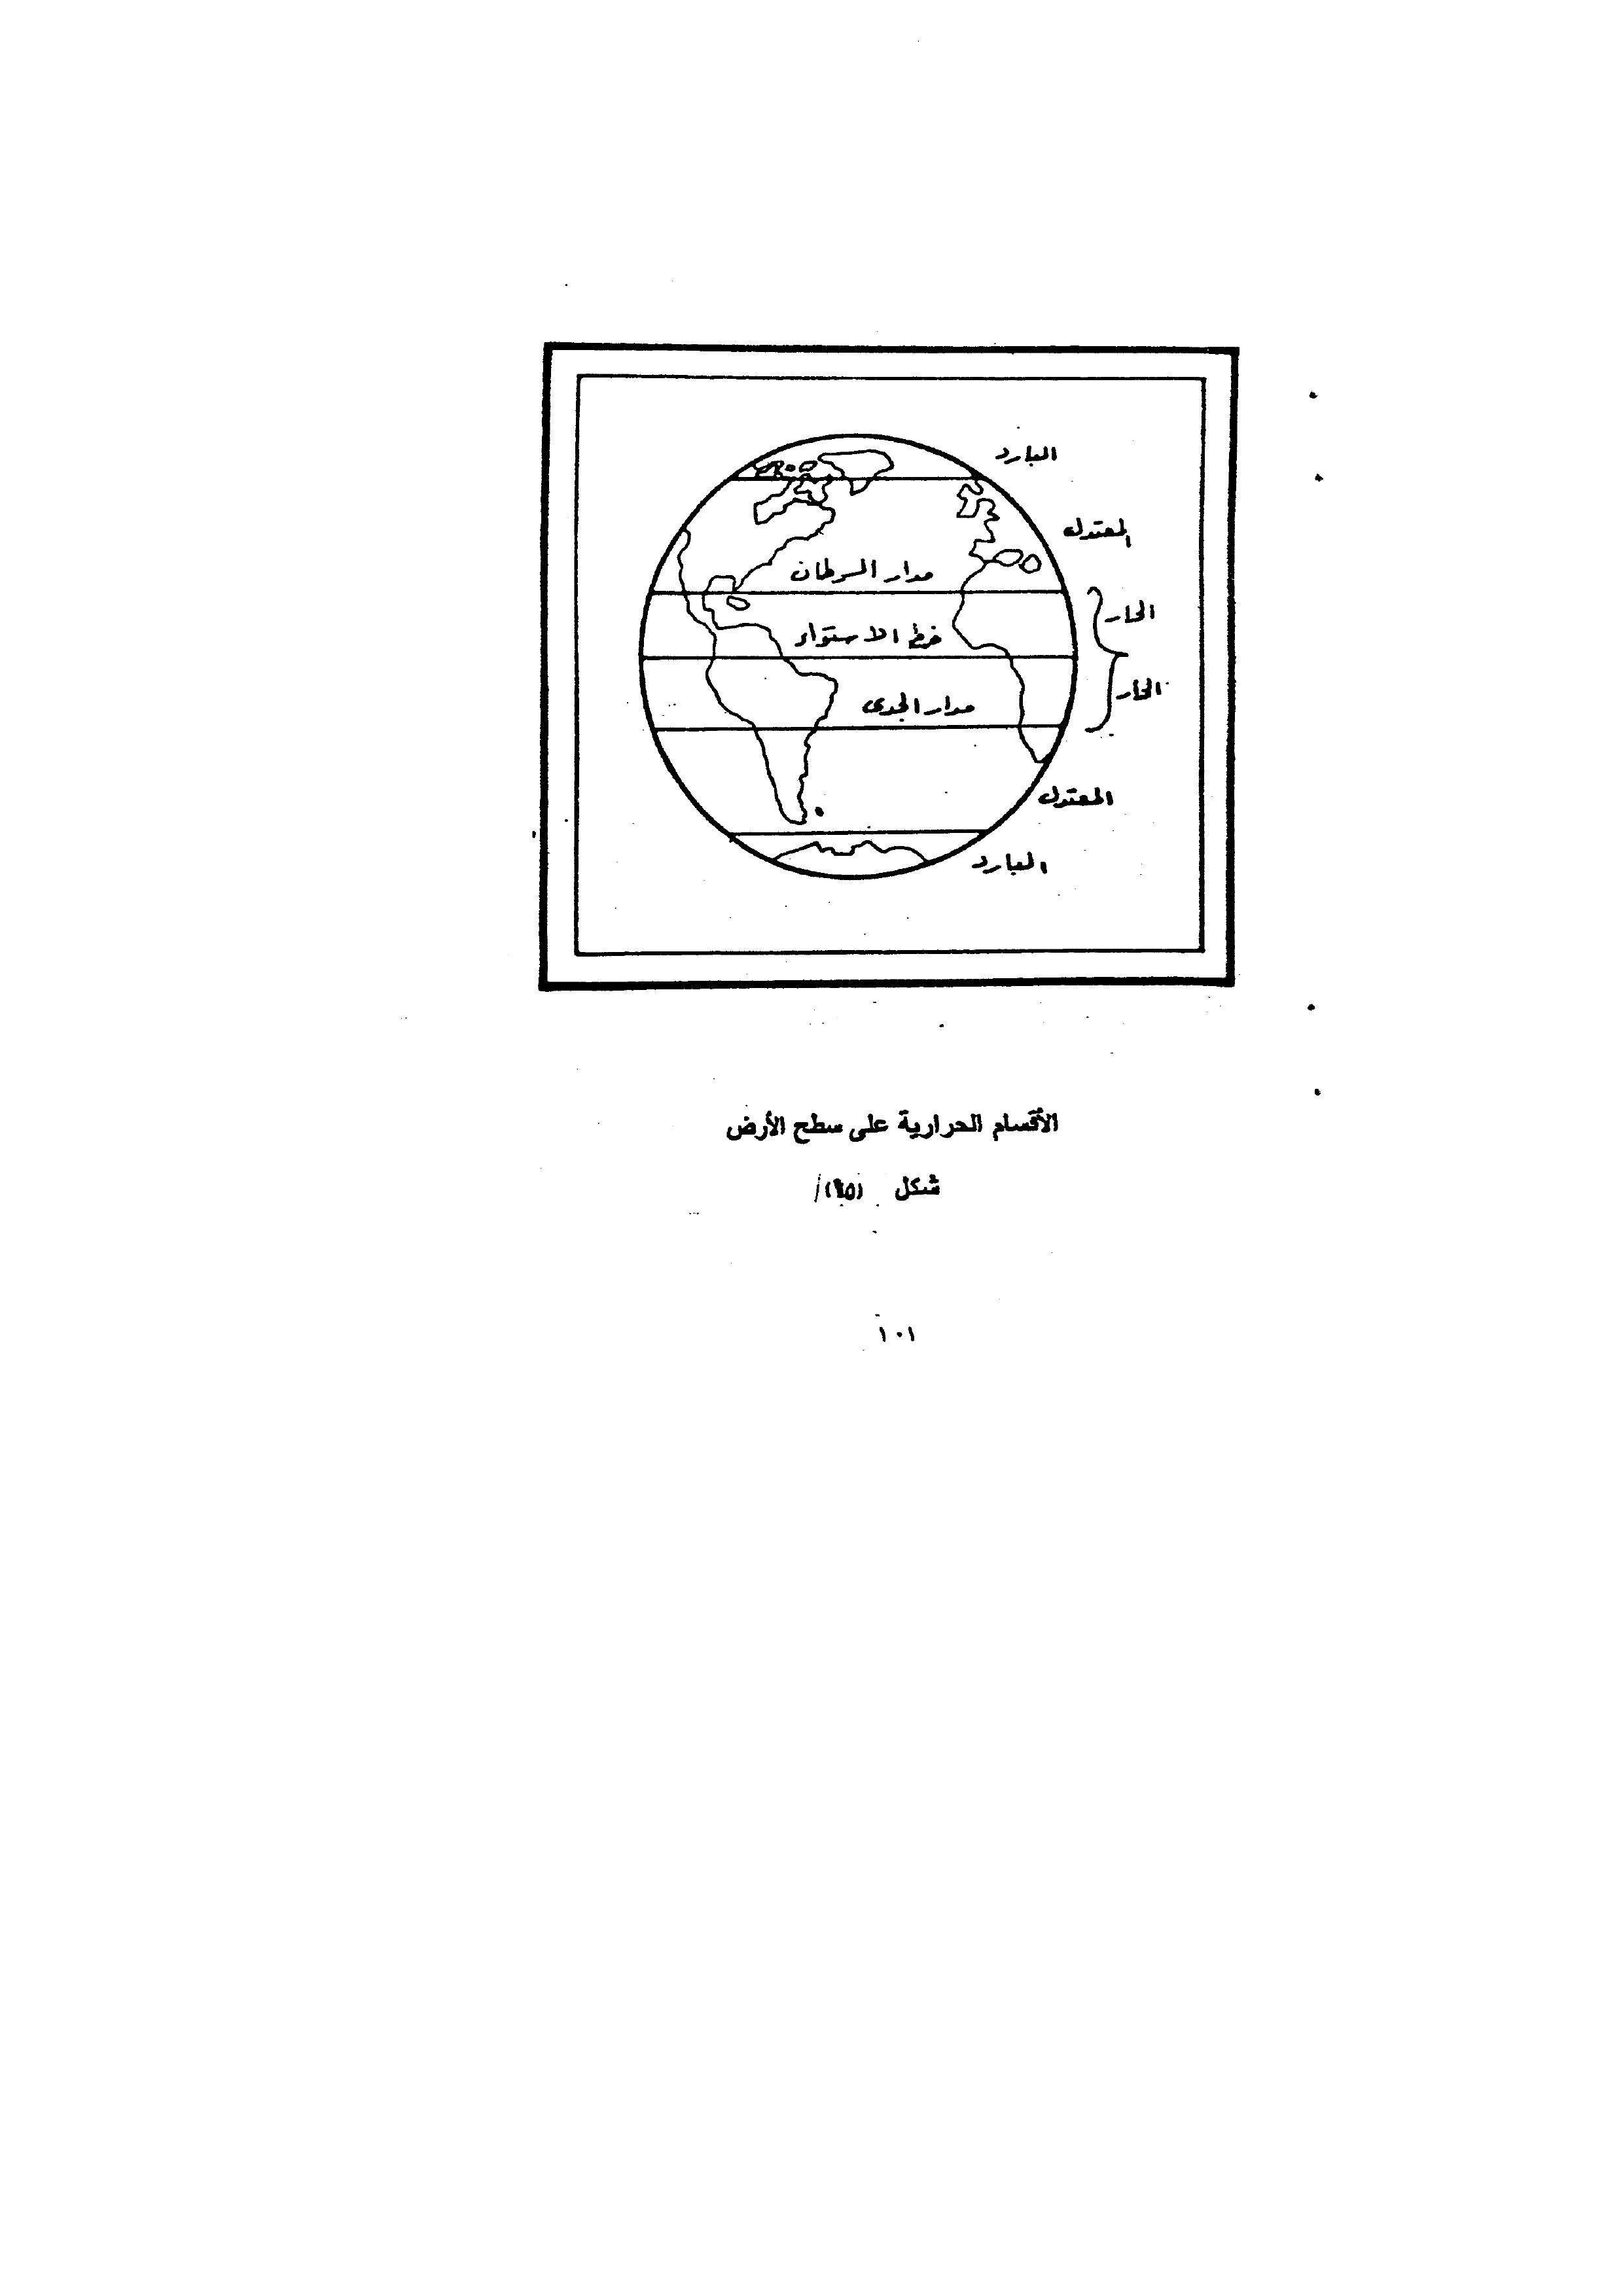 البارد
المعتدل
مدار السرطان
الحار
خط الاستواء
الحار
مدار الجدى
المعتدل
البارد
الأقسام الحرارية على سطح الأرض
شكل
١٠١